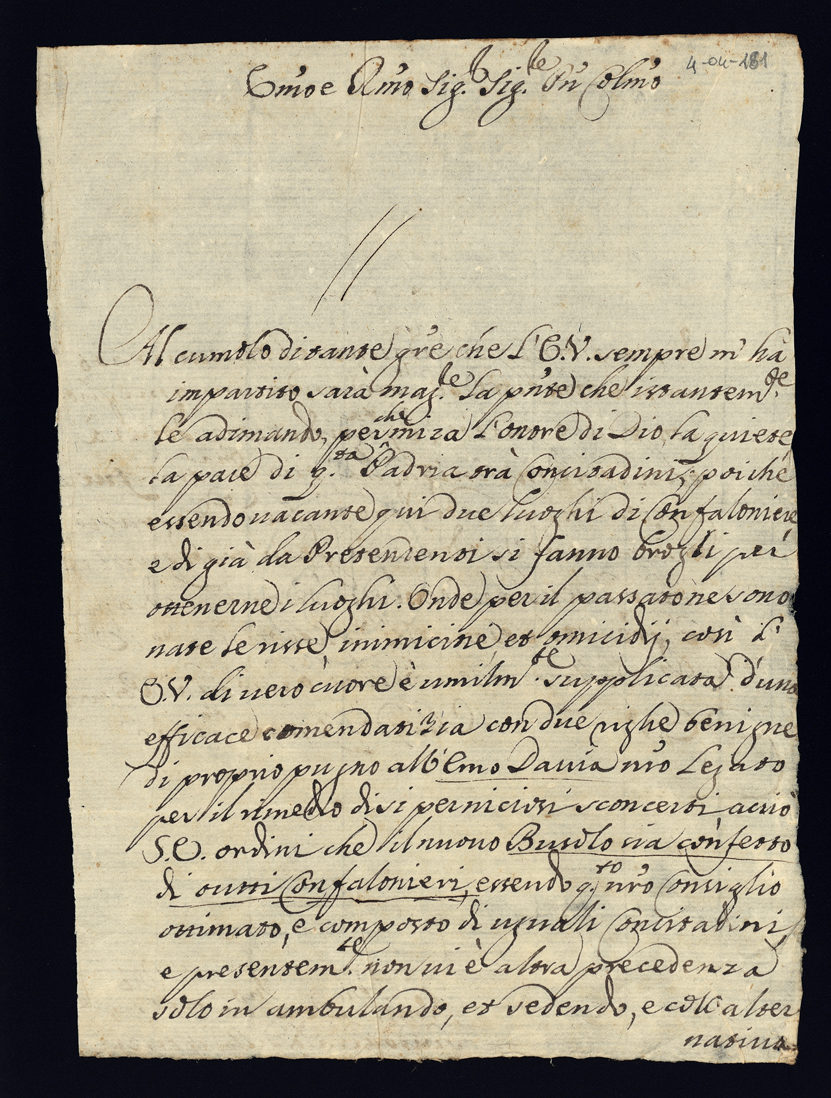 4-04-181
Emo e Rmo Sig.r Sig.re Pn Colmo
Al cumolo di tante gre che l'E.V. sempre m' ha
impartito sarà mag.re la pnte che istantem.te
le adimando, perche mira l'onore di Dio, la quiete
la pace di q.ta Padria trà Concitadini; poiche
essendo vacante qui due luoghi di Confaloniere
e di già da Pretendenti si fanno brogli per
ottenerne i luoghi. Onde per il passato ne sono
nate le risse inimicizie et omicidij, così l'
E.V. di vero cuore è umilm.te supplicata d'una
efficace comendatizia con due righe benigne
di proprio pugno all'Emo Davia nro Legato
per il rimedio di si perniciosi sconcerti, acciò
S.E. ordini che il nuovo Busolo sia confetto
di tutti Confalonieri, essendo q.to nro Consiglio
ottimato, e composto di uguali Concitadini,
e presentem.te non vi è altra precedenza
solo in ambulando, et sedendo, e coll'alter
nativa